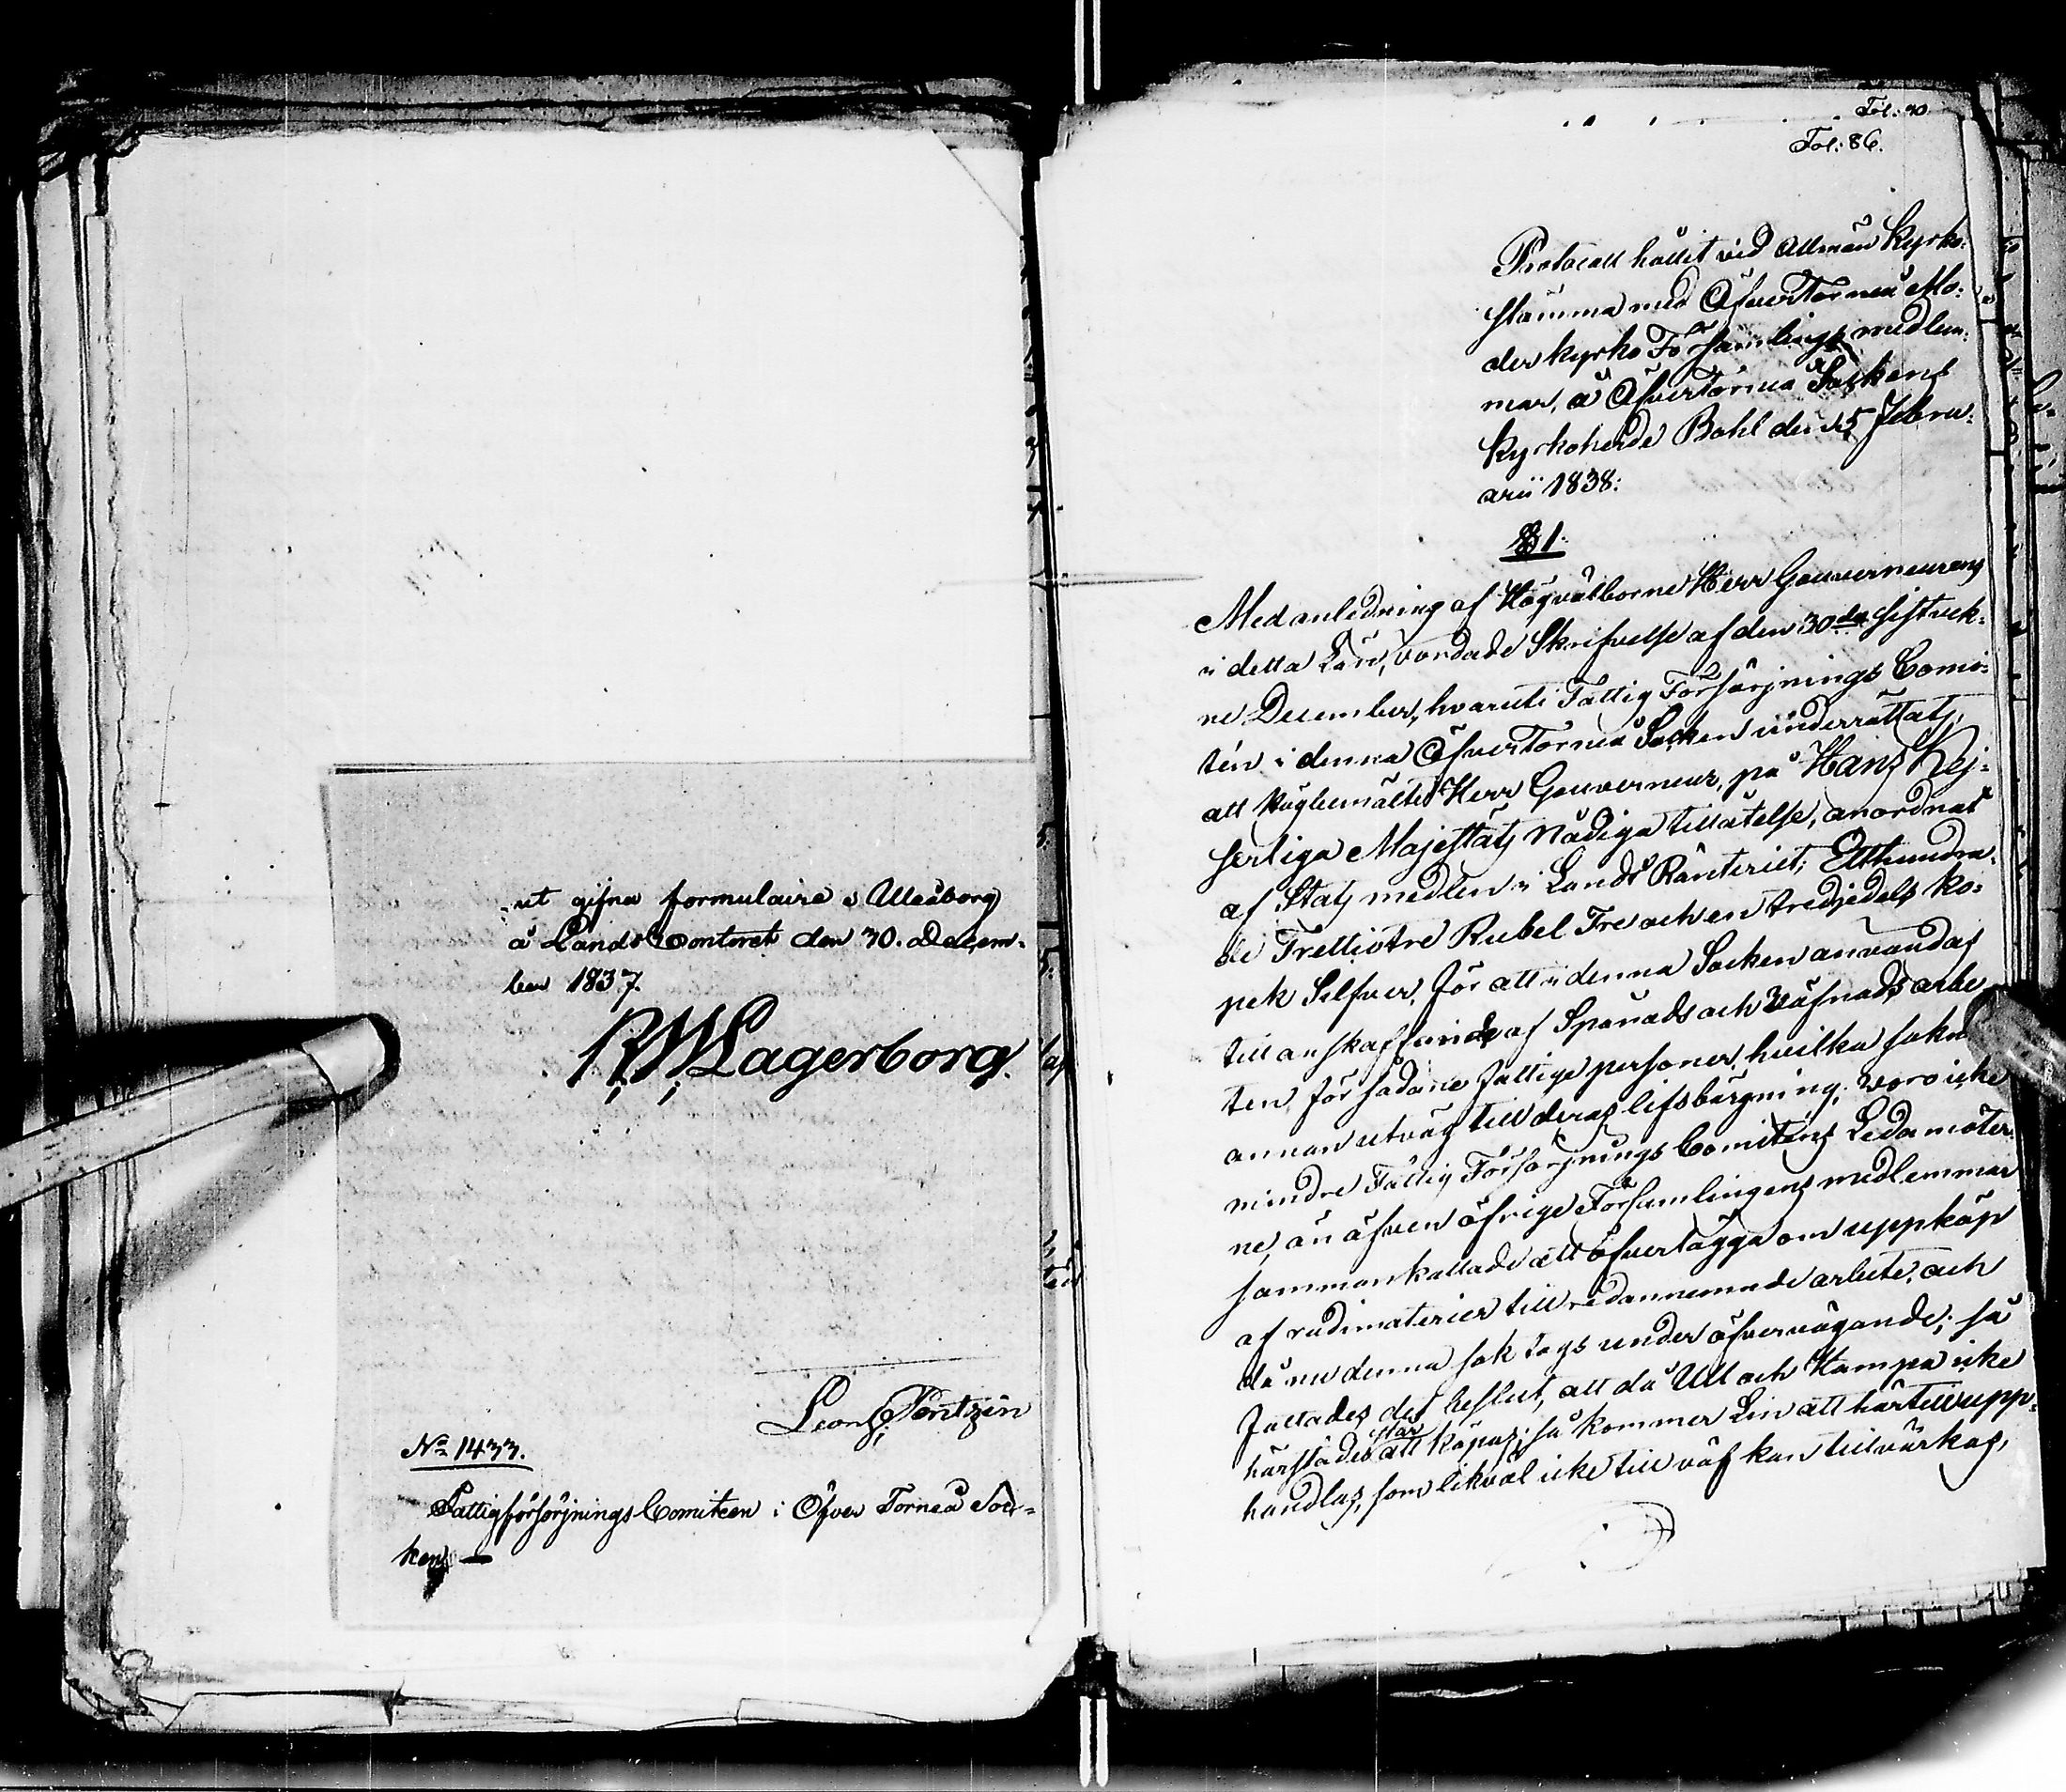 ut gifna formulaire i Uleåborg
å Lands Contoret den 30. Decem-
ber 1837.
R W Lagerborg.
Leons Pentzin
No 1433.
Fattigförsörjnings Comiteen i Öfver Torneå Soc-
ken
Fol: 90
Fol: 86.
Protocoll hållit vid allmän Kyrko-
stämma med ÖfverTorneå Mo-
derkyrko Församlings medlem-
mar, å ÖfverTorneå Sockens
Kyrkoherde Bohl den 25 Febru-
arii 1838:
§ 1.
Med anledning af Högvälborne Herr Gouverneurens
i detta Län, vördade Skrifvelse af den 30de sistvek-
ne December, hvaruti Fattig Försörjnings Comi-
tén i denna ÖfverTorneå Socken underrättats,
att Högbemälte Herr Gouverneur, på Hans Kej-
serliga Majestäts Nådiga tillåtelse, anordnat
af Stats medlen i Lands Ränteriet, Etthundra-
de Trettiotre Rubel Tre och en tredjedels Ko-
pek Silfver, för att i denna Socken användas
till anskaffande af Spånads och Väfnads arbe-
ten för sådane fattige personer, hvilka sakna
annan utväg till deras lifsbärgning; voro icke
mindre Fattig Försörjnings Comitens Ledamöter-
ne, än äfven öfrige Församlingens medlemmar
sammankallade att öfverlägga om uppköp
af rudimaterier till redannemnde arbete, och
då nu denna sak togs under öfvervägande; så
fattades det beslut, att då Ull och Hampa icke
härstädes står att köpas; så kommer Lin att härtill upp-
handlas, som likväl icke till väf kan tillvärkas,